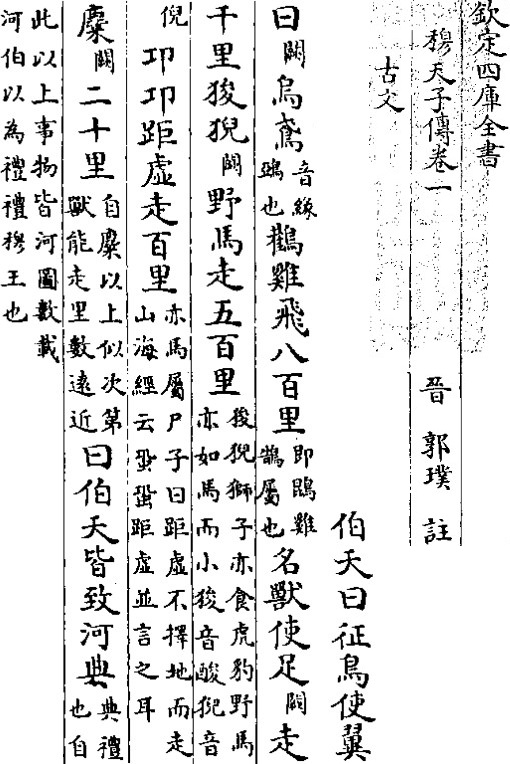 欽定四庫全書
穆天子傳卷一 晉 郭璞 註
古文
伯夭曰征鳥使翼
曰闕烏鳶音緣鴟也鸛雞飛八百里即鵾雞鵠屬也名獸使足闕走
千里狻猊闕野馬走五百里狻猊獅子亦食虎豹野馬亦如馬而小狻音酸猊音
倪卭卭距虛走百里亦馬屬尸子曰距虛不擇地而走山海經云蛩蛩距虛並言之耳
麋闕二十里自麋以上似次第獸能走里數遠近曰伯夭皆致河典典禮也自
此以上事物皆河圖數載河伯以為禮禮穆王也